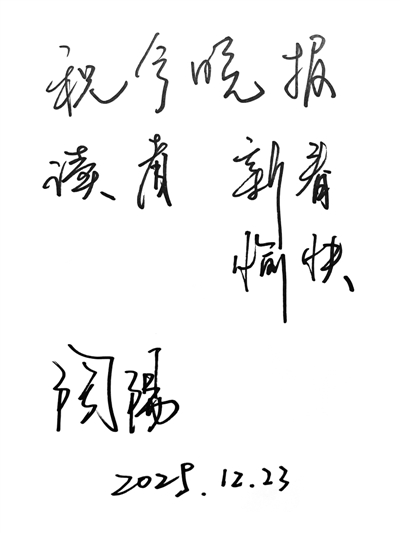 祝今晚报
读者 新春
愉快
阎阳
2025.12.23